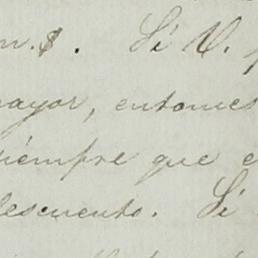 m.$. Si V.
mayor, entonces
siémpre que e
descuento. Si